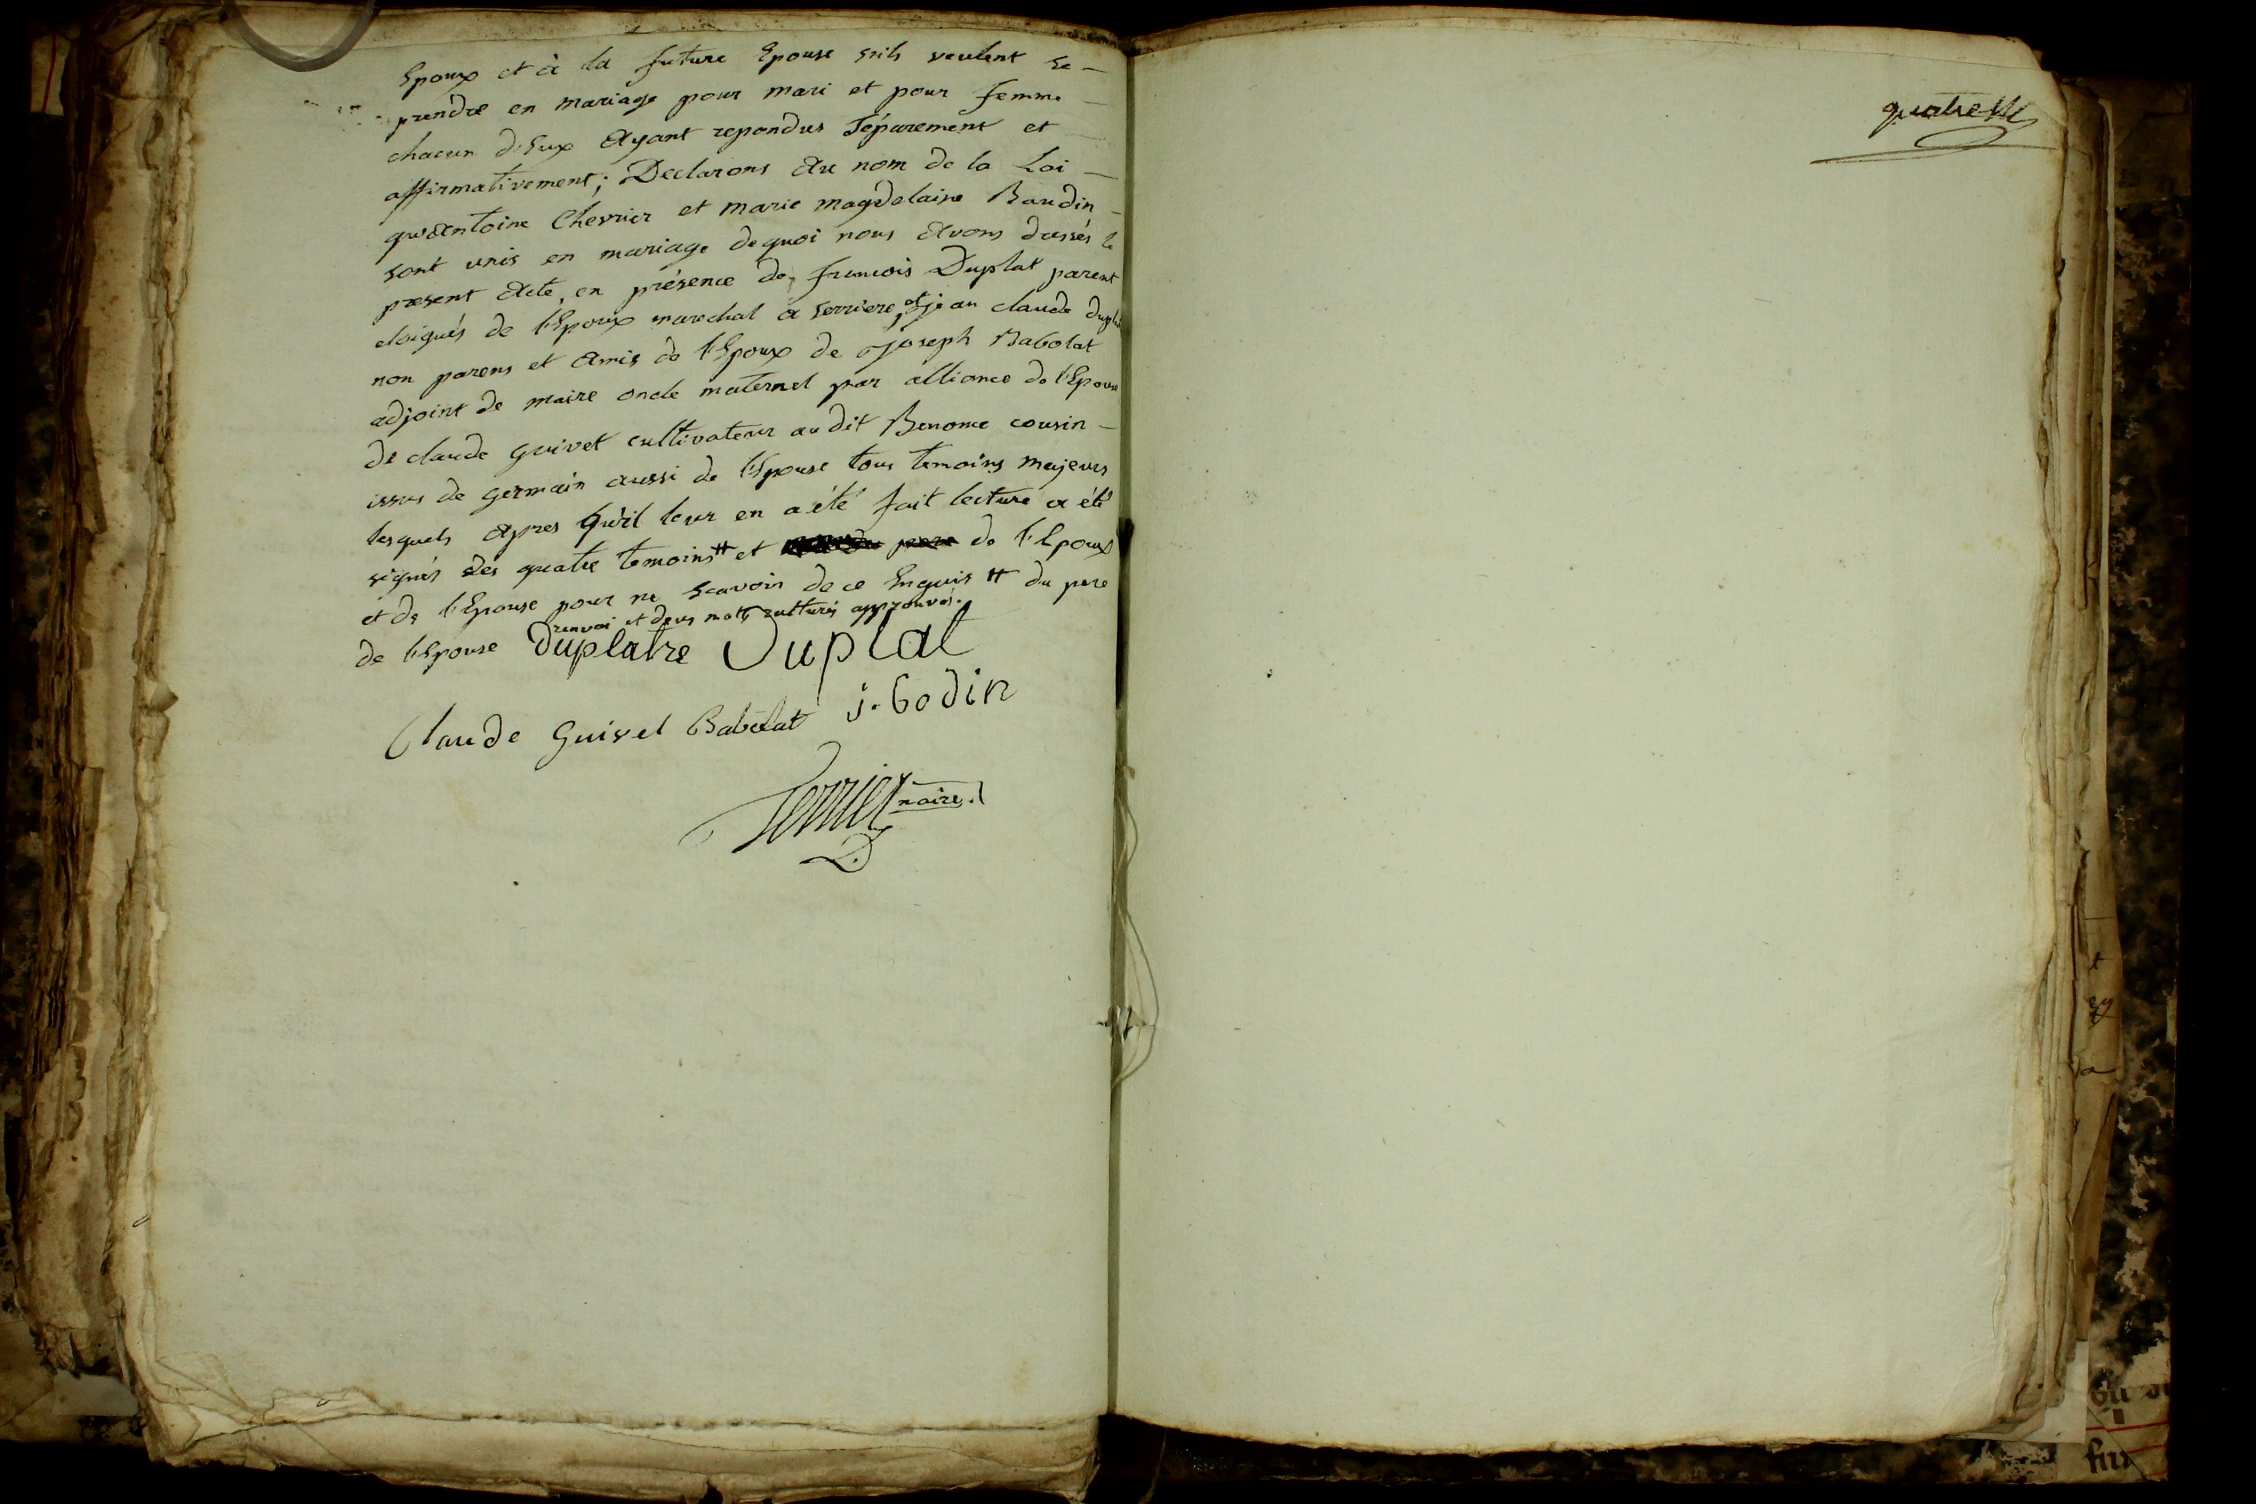 Epoux et à la future Epouse s'ils veulent se
prendre en mariage pour mari et pour femme
chacun d'Eux Ayant repondus Séparement et
affirmativement; Declarons Au nom de la Loi
qu'Antoine Chevrier et marie magdelaine Baudin
sont unis en mariage de quoi nous Avons dressés le
present Acte, en présence de, francois Duplat parent
eloignés de l'Epoux marechal a serriere, et jean claude
non parens et Amis de l'Epoux de joseph Babolat
adjoint de maire oncle maternel par alliance de l'Epouse
de claude Guivet cultivateur audit Benonce cousin
issus de germain aussi de l'Epouse tous temoins majeurs
lesquels Apres qu'il leur en a été fait lecture a été
signés des quatre temoins # et de l'Epoux
et de l'Epouse pour ne scavoir de ce Enquis # du pere
renvoi et deux mots raturés approuvés.
de l'Epouse Duplatre Duplat
Claude Guivet Babolat j. Bodin
maire
quatre